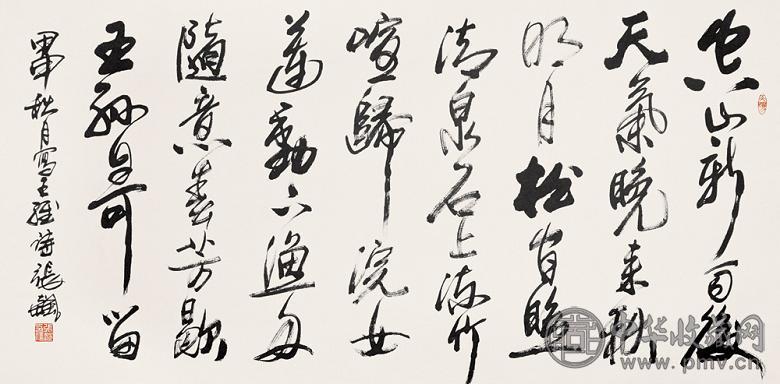 空山新雨後
天氣晚来秋
明月松间照
清泉石上流竹
喧歸浣女
蓮動下漁舟
隨意春芳歇
王孫自可留
甲申秋月寫王維詩張
中华收藏网